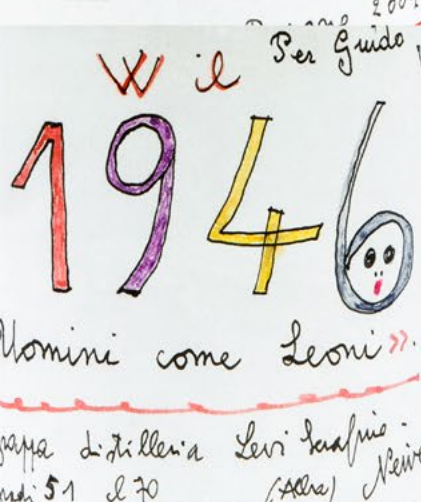 Per Guido
W il
1946
Uomini come Leoni».
grappa distilleria Levi Serafino.
gradi 51 cl 70 (Alba) Neive